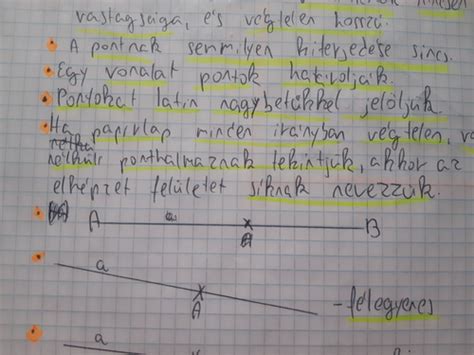 vastagsága, és végtelen hosszú.
A pontnak semmilyen kiterjedése sincs.
Egy vonalat pontok határolják.
Pontokat latin nagybetűkkel jelöljük
Ha papírlap minden irányban végtelen, va
nélküli ponthalmaznak tekintjük, akkor az
elképzelt felületet síknak nevezzük.
A a B
A
a
A
- félegyenes
a